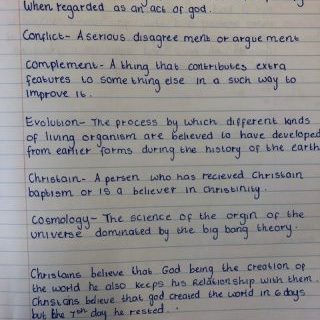 when regarded as an act of god.
Conflict- A serious disagree ment or argue ment
Complement- A thing that contributes extra
features to something else in a such way to
improve it.
Evolution- The process by which different kinds
of living organism are believed to have developed
from earlier forms during the history of the earth
Christain- A persen who has recieved Christain
baptism or is a believer in Christinity.
Cosmology- The science of the orgin of the
universe dominated by the big bang theory.
Christians believe that God being the creation of
the world he also keeps his relationship with them.
Christans believe that god created the world in 6 days
but the 7th day he rested...